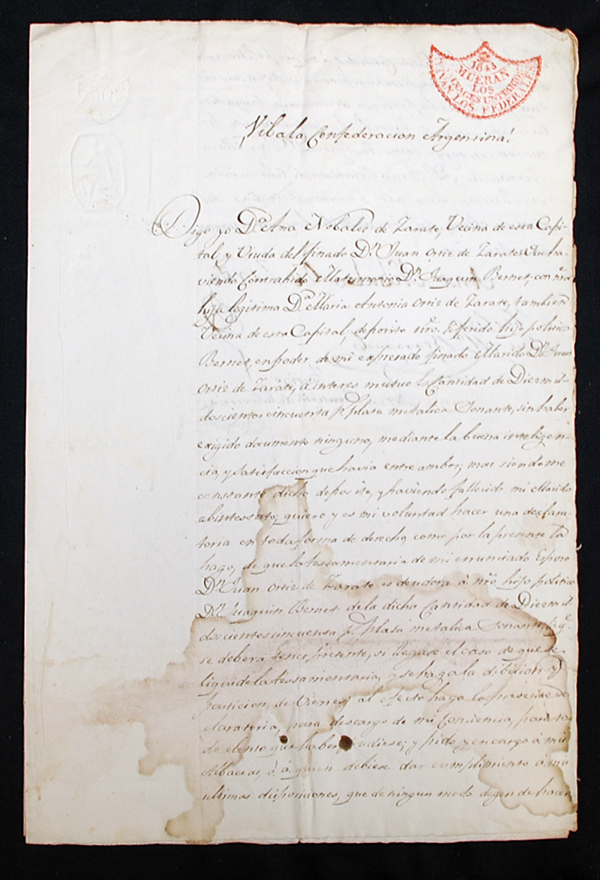 1843
MUERAN
LOS
VIVAN LOS FEDERALES
Viba la Confederacion Argentina!
Digo yo Dª Ana Nobales de Zarate, Vecina de esta Capi-
tal, y Viuda del finado Dn Juan Ortiz de Zarate: Que ha-
viendo Contrahido Matrimonio Dn Juaquin Bernet, con ntra
hija legitima Dª Maria Antonia Ortiz de Zarate, tambien
Vecina de esta Capital, deposito ntro referido hijo politico
Bernet, en poder de mi expresado finado Marido Dn Juan
Ortiz de Zarate, á interes mutuo la Cantidad de Diez mil
doscientos cincuenta ps plata metalica Sonante, sin haber
exigido documento ninguno, mediante la buena inteligen-
cia, y satisfaccion que havia entre ambos; mas siendome
constante dicho deposito, y haviendo fallecido mi Marido
abintestato, quiero y es mi voluntad hacer una declara-
toria en toda forma de derecho, como por la presente la
hago, de que la testamentaria de mi enunciado Esposo
Dn Juan Ortiz de Zarate es deudora á ntro hijo politico
Dn Juaquin Bernet de la dicha Cantidad de Diez mil
doscientos cincuenta ps plata metalica Sonante, qe
se deberá tener presente, si llegase el caso de que se
liquide la testamentaria, y se haga la dibision y
particion de Vienes; al efecto hago la presente de-
claratoria, para descargo de mi Conciencia, para to-
do evento que haber pudiese; y pido y encargo á mis
Albaceas, ó á quien debiese dar cumplimiento á mis
ultimas disposiciones, que de ningun modo dejen de hacer